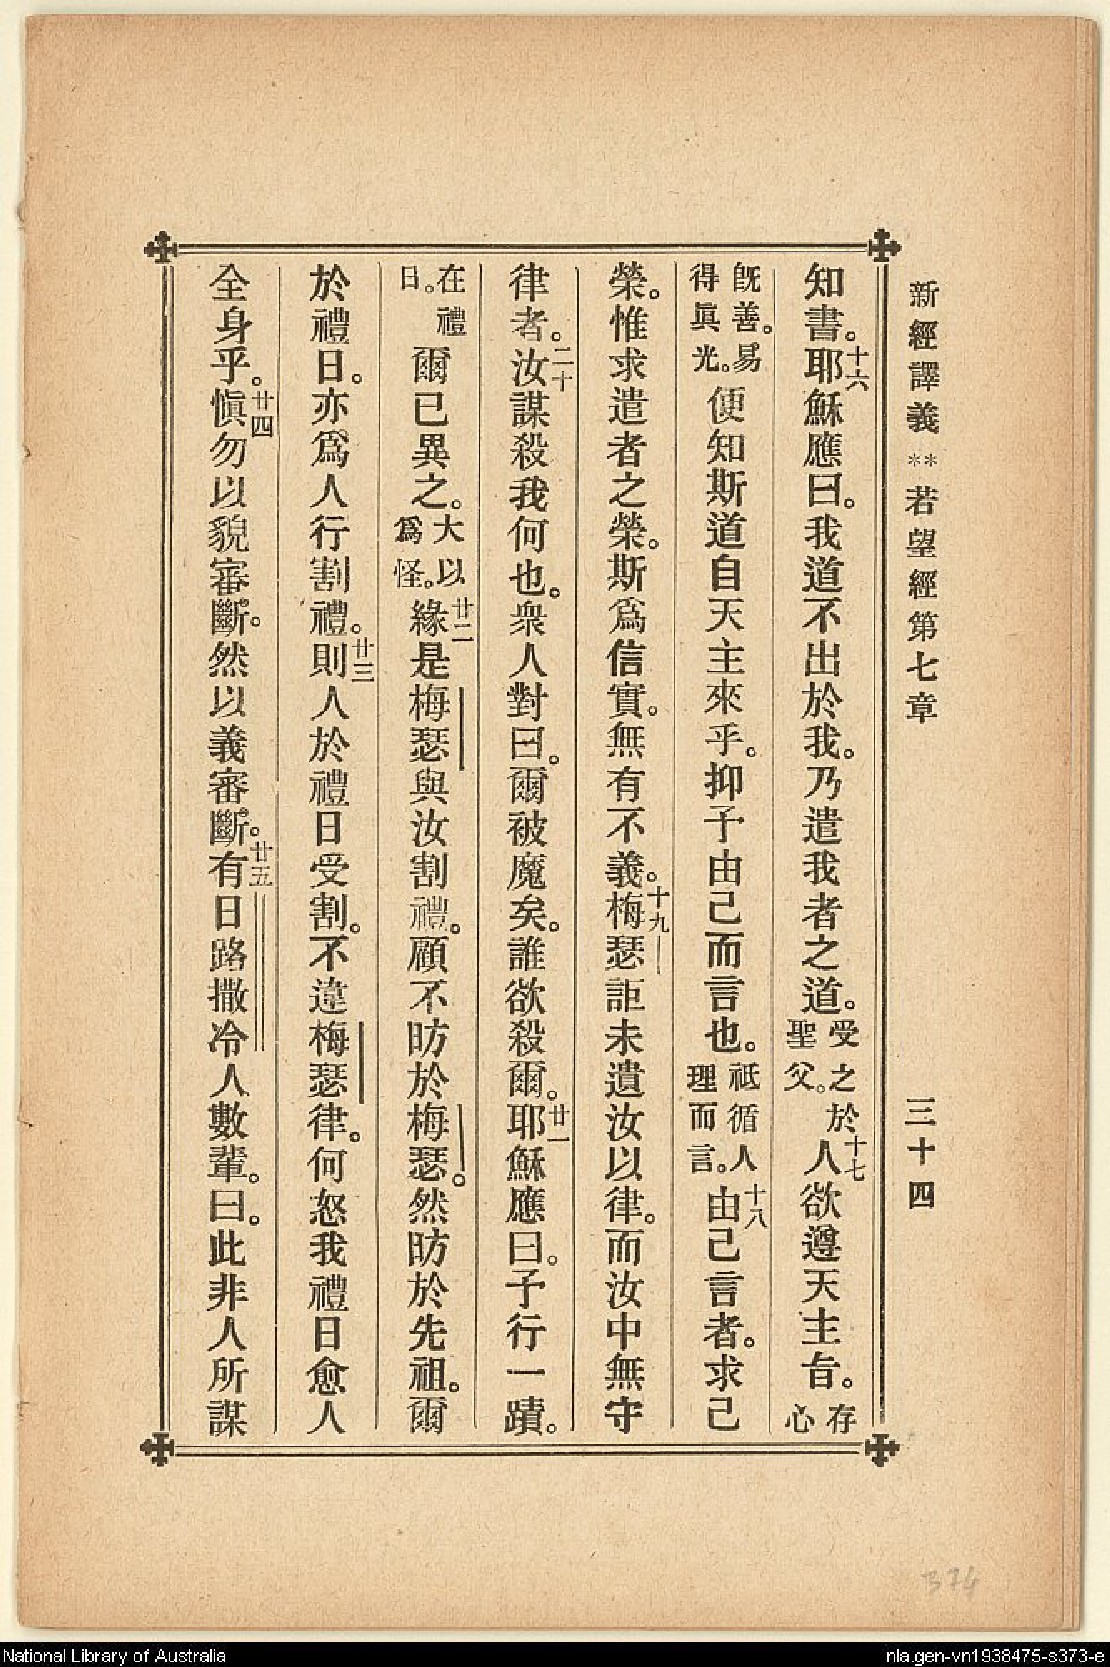 新經譯義**若望經第七章 三十四
知書。十六耶穌應曰。我道不出於我。乃遣我者之道。受之於聖父。十七人欲遵天主旨。存心
既善。易得眞光。便知斯道自天主來乎。抑予由己而言也。祇循人理而言。十八由己言者。求己
榮。惟求遣者之榮。斯爲信實。無有不義。十九梅瑟詎未遺汝以律。而汝中無守
律者。二十汝謀殺我何也。衆人對曰。爾被魔矣。誰欲殺爾。廿一耶穌應曰。予行一蹟。
在禮日。爾已異之。大以爲怪。廿二緣是梅瑟與汝割禮。顧不昉於梅瑟。然昉於先祖。爾
於禮日。亦爲人行割禮。廿三則人於禮日受割。不違梅瑟律。何怒我禮日愈人
全身乎。廿四愼勿以貌審斷。然以義審斷。廿五有日路撒冷人數輩。曰。此非人所謀
374
National Library of Australia
nla.gen-vn1938475-s373-e